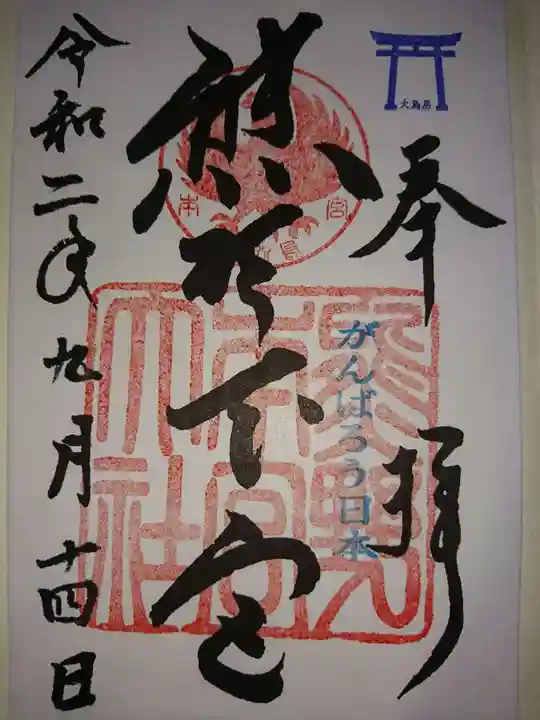 奉拝
がんばろう日本
熊野本宮
熊野
本宮
大社
令和二年九月十四日